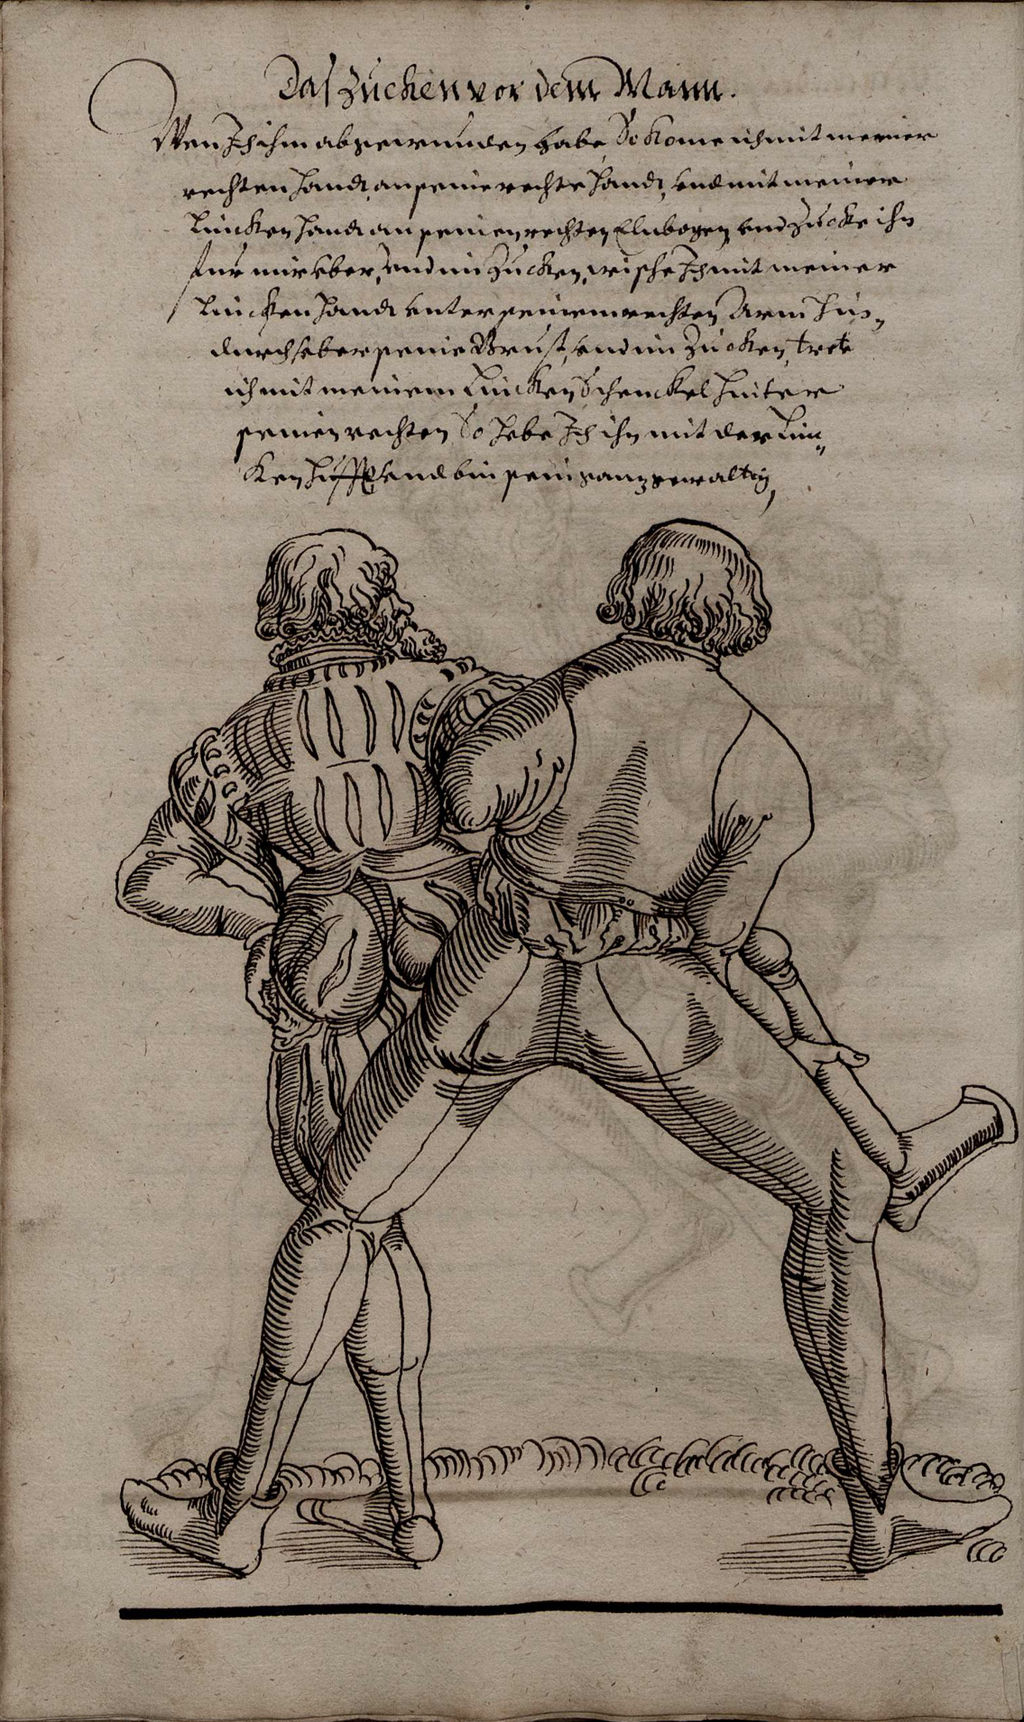 Das Zucken vor dem Mann.
Wen Ich ihm abgewunden habe, So kome ich mit meiner
rechten handt, an seine rechte handt, vnd mit meiner
lincken handt an seinen rechten Elnbogen, vnd Zucke ihn
für mir vber, vnd im Zucken, wische Ich mit meiner
lincken handt vnter seinem rechten Arm hin„
durch vber seine Brust, vnd im Zucken, trete
ich mit meinem lincken Schenckel hinter
seinen rechten So hebe Ich ihn mit der lin„
ken hüfft vnd bin sein gantz gewaltig,